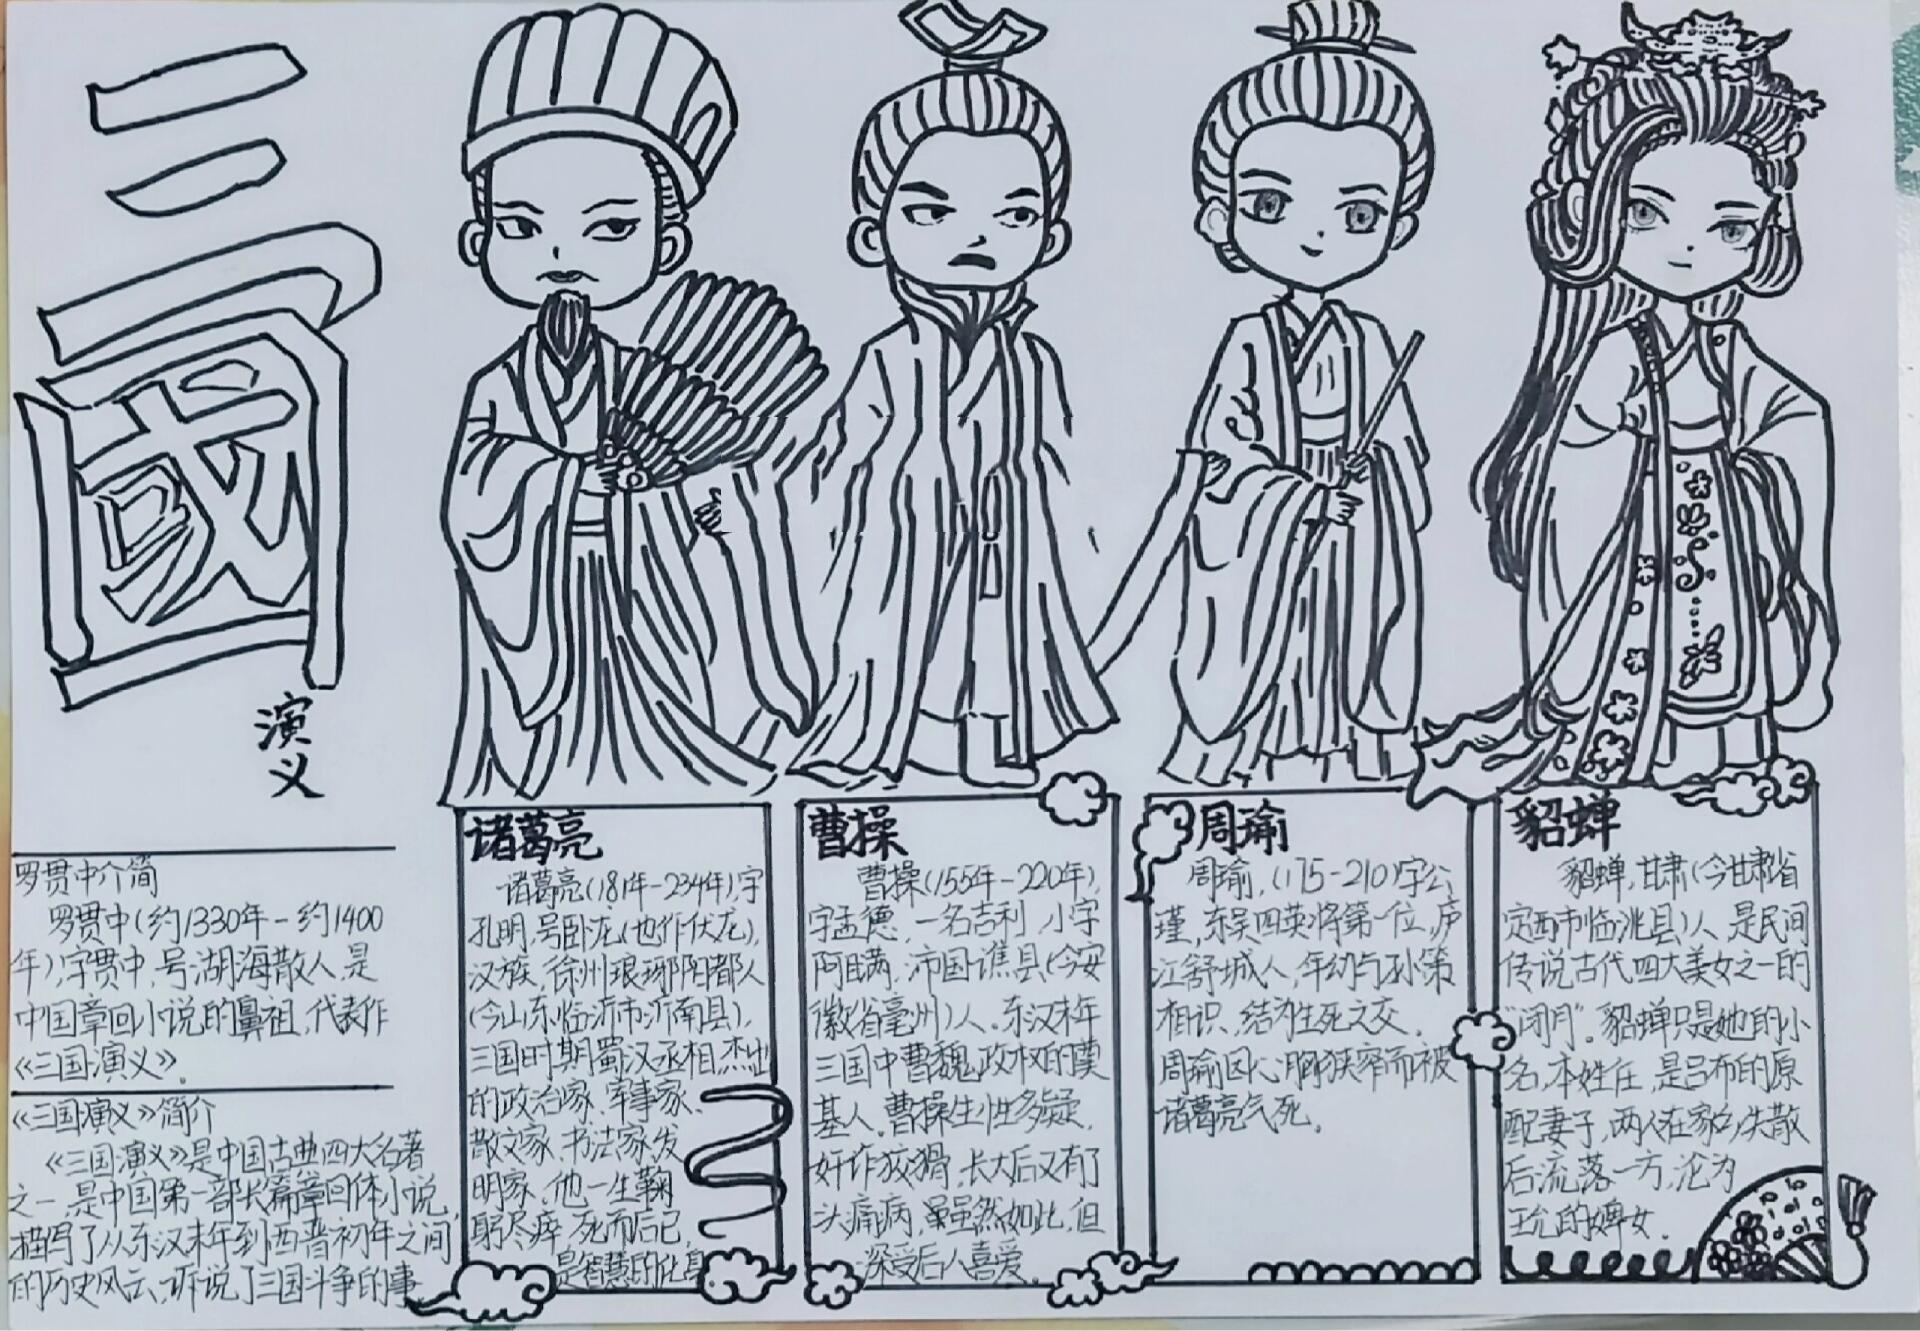 三
國
演
义
罗贯中介简
罗贯中(约1330年-约1400
年),字贯中,号湖海散人,是
中国章回小说的鼻祖,代表作
《三国演义》。
《三国演义》简介
《三国演义》是中国古典四大名著
之一,是中国第一部长篇章回体小说,
描写了从东汉末年到西晋初年之间
的历史风云,诉说了三国斗争的事
诸葛亮
诸葛亮(181年-234年),字
孔明,号卧龙(也作伏龙),
汉族,徐州琅琊阳都人
(今山东临沂市沂南县),
三国时期蜀汉丞相,杰出
的政治家、军事家、
散文家、书法家、发
明家。他一生鞠
躬尽瘁,死而后已,
是智慧的化身
曹操
曹操(155年-220年),
字孟德,一名吉利,小字
阿瞒,沛国谯县(今安
徽省亳州)人。东汉末年
三国中曹魏政权的奠
基人。曹操生性多疑,
奸诈狡猾,长大后又有了
头痛病,虽然如此,但
深受后人喜爱。
周瑜
周瑜,(175-210)字公
瑾,东吴四英将第一位,庐
江舒城人,年幼与孙策
相识,结为生死之交。
周瑜因心胸狭窄而被
诸葛亮气死。
貂蝉
貂蝉,甘肃(今甘肃省
定西市临洮县)人,是民间
传说古代四大美女之一的
"闭月"。貂蝉只是她的小
名,本姓任,是吕布的原
配妻子,两人在家乡失散
后,流落一方,沦为
王允的婢女。